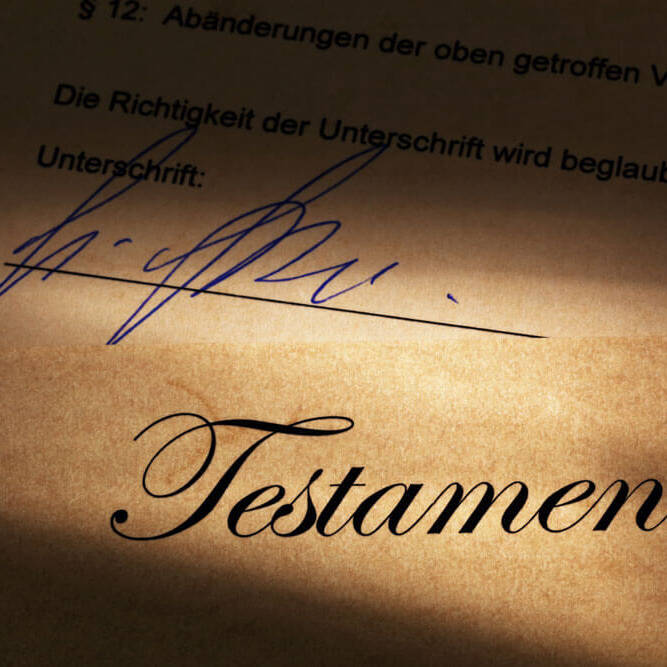 § 12: Abänderungen der oben getroffen V
Die Richtigkeit der Unterschrift wird beglaub
Unterschrift:
Testamen